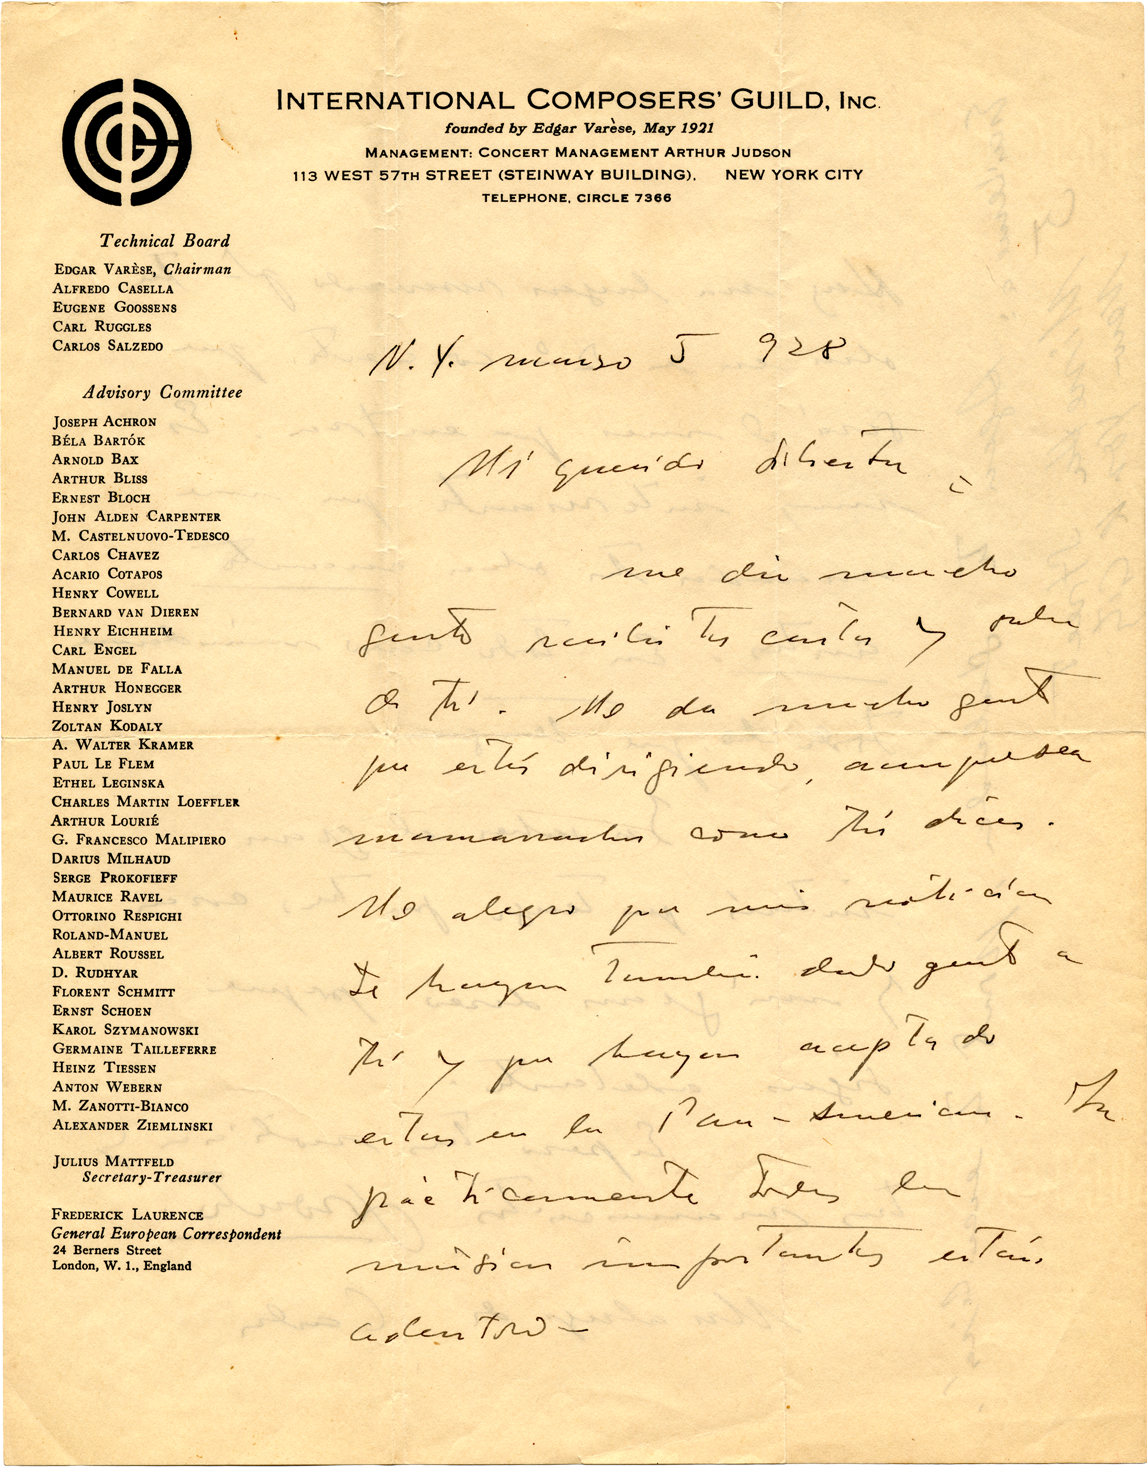 INTERNATIONAL COMPOSERS' GUILD, INC.
founded by Edgar Varèse, May 1921
MANAGEMENT: CONCERT MANAGEMENT ARTHUR JUDSON
113 WEST 57TH STREET (STEINWAY BUILDING), NEW YORK CITY
TELEPHONE, CIRCLE 7366
Technical Board
EDGAR VARÈSE, Chairman
ALFREDO CASELLA
EUGENE GOOSSENS
CARL RUGGLES
CARLOS SALZEDO
Advisory Committee
JOSEPH ACHRON
BÉLA BARTÓK
ARNOLD BAX
ARTHUR BLISS
ERNEST BLOCH
JOHN ALDEN CARPENTER
M. CASTELNUOVO-TEDESCO
CARLOS CHAVEZ
ACARIO COTAPOS
HENRY COWELL
BERNARD VAN DIEREN
HENRY EICHHEIM
CARL ENGEL
MANUEL DE FALLA
ARTHUR HONEGGER
HENRY JOSLYN
ZOLTAN KODALY
A. WALTER KRAMER
PAUL LE FLEM
ETHEL LEGINSKA
CHARLES MARTIN LOEFFLER
ARTHUR LOURIÉ
G. FRANCESCO MALIPIERO
DARIUS MILHAUD
SERGE PROKOFIEFF
MAURICE RAVEL
OTTORINO RESPIGHI
ROLAND-MANUEL
ALBERT ROUSSEL
D. RUDHYAR
FLORENT SCHMITT
ERNST SCHOEN
KAROL SZYMANOWSKI
GERMAINE TAILLEFERRE
HEINZ TIESSEN
ANTON WEBERN
M. ZANOTTI-BIANCO
ALEXANDER ZIEMLINSKI
JULIUS MATTFELD
Secretary-Treasurer
FREDERICK LAURENCE
General European Correspondent
24 Berners Street
London, W. 1., England
N. Y. marzo 5 928
Mi querido
me dió mucho
gusto recibir tus cartas y saber
de tí. Me da mucho gusto
que estés dirigiendo, aunque sea
mamarrachos como tú dices.
Me alegro que mis noticias
te hayan también dado gusto a
tí y que hayas aceptado
estar en la Pan-American. Ya
prácticamente todos los
músicos importantes están
adentro -